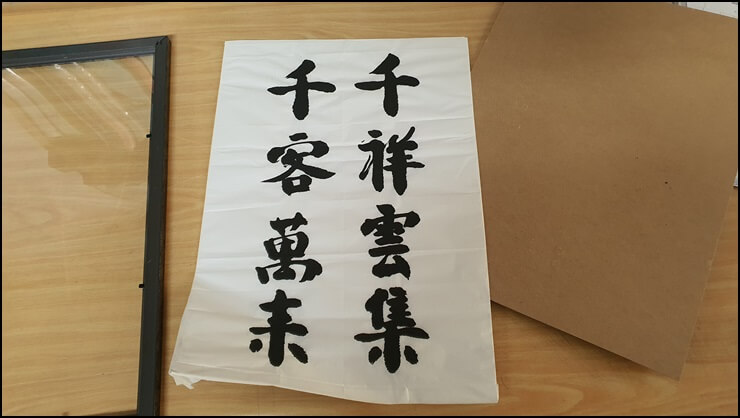 千祥雲集
千客萬来